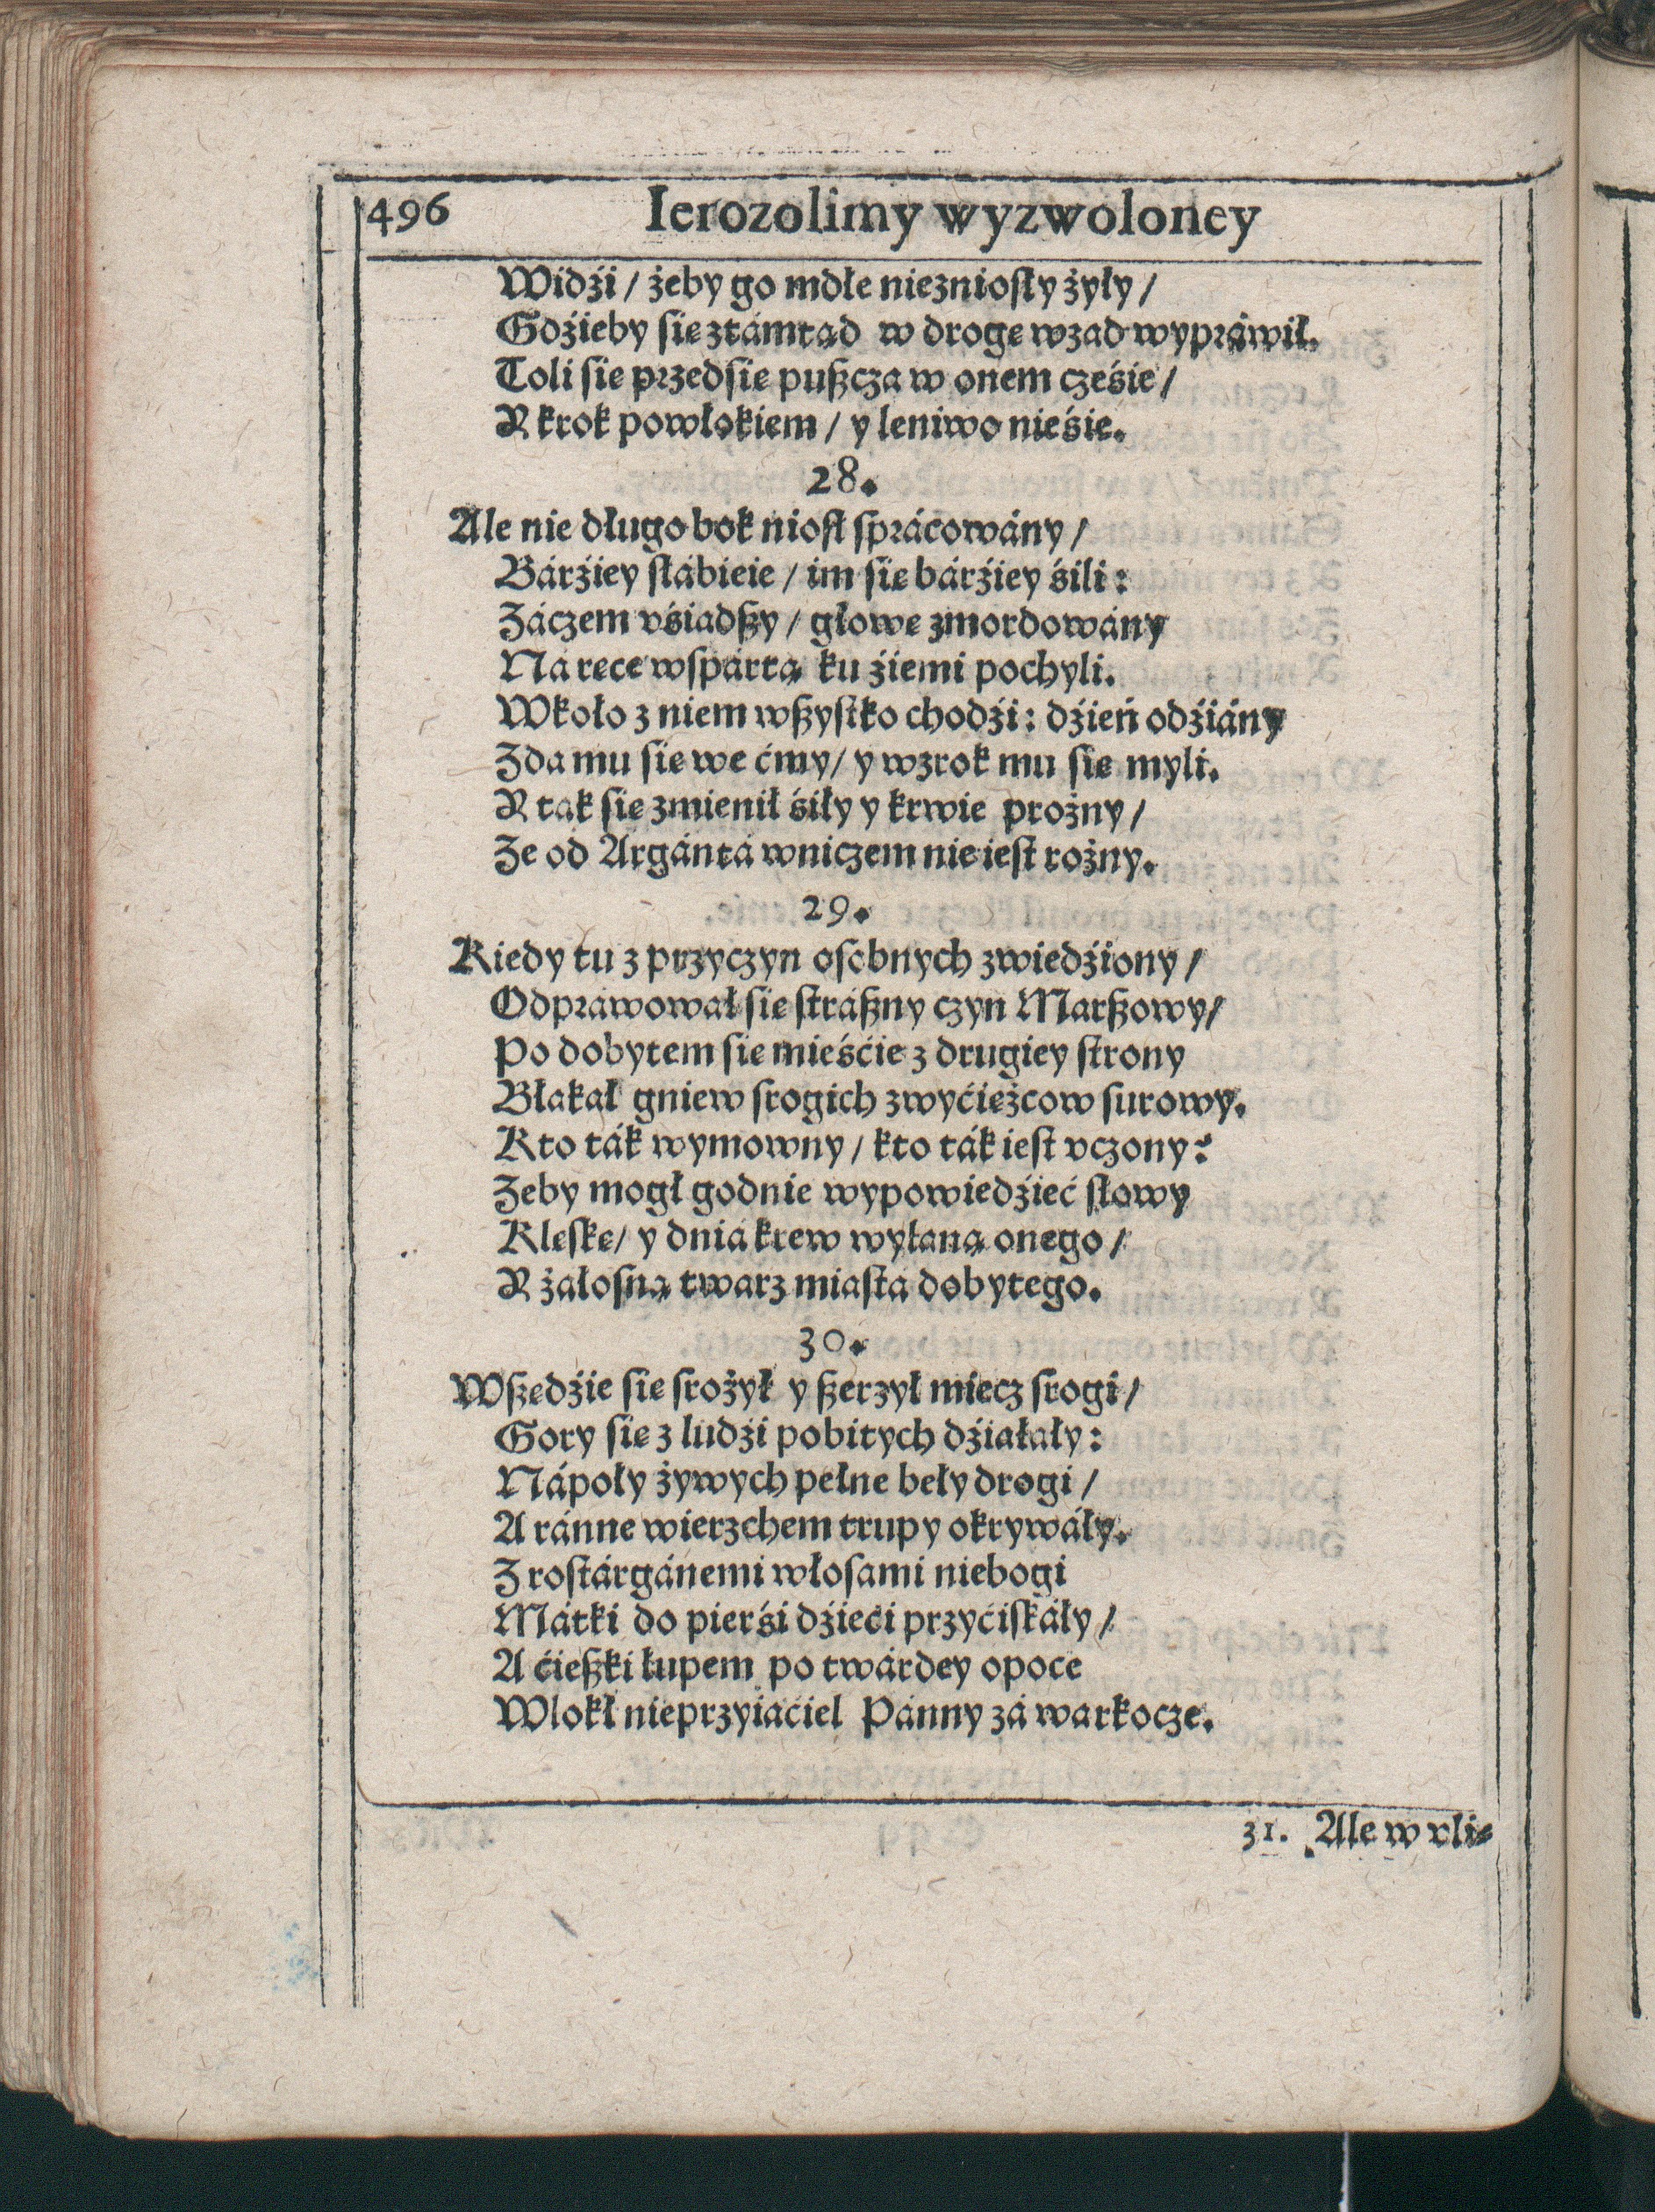 496 Ierozolimy wyzwoloney
Widźi / żeby go mdłe niezniosły żyły /
Gdźieby się ztámtąd w drogę wzad wypráwił.
Toli się przedsię pußcza w onem cześie /
Y krok powłokiem / y leniwo nieśie.
28.
Ale nie długo bok niosł sprácowány /
Bárźiey słábieie / im się bárźiey śili :
Záczem vśiadßzy / głowę zmordowány
Na ręce wspártą ku źiemi pochyli.
Wkoło z niem wßystko chodźi : dźień odźiány
Zda mu się we ćmy / y wzrok mu się myli.
Y tak się zmienił śiły y krwie prożny /
Ze od Argántá wniczem nie iest rożny.
29.
Kiedy tu z przyczyn osobnych zwiedźiony /
Odprawował się stráßny czyn Marßowy /
Po dobytem się mieśćie z drugiey strony
Błąkał gniew srogich zwyćiężcow surowy.
Kto ták wymowny / kto ták iest vczony ?
Zeby mogł godnie wypowiedźieć słowy
Klęskę / y dniá krew wylaną onego /
Y żałosną twarz miasta dobytego.
30.
Wßędźie się srożył y ßerzył miecz srogi /
Gory się z ludźi pobitych dźiałały :
Nápoły żywych pełne beły drogi /
A ránne wierzchem trupy okrywáły.
Z rostárgánemi włosami niebogi
Mátki do pierśi dźieći przyćiskáły /
A ćięßki łupem po twárdey opoce
Wlokł nieprzyiaćiel Pánny zá warkocze.
31. Ale w vli-